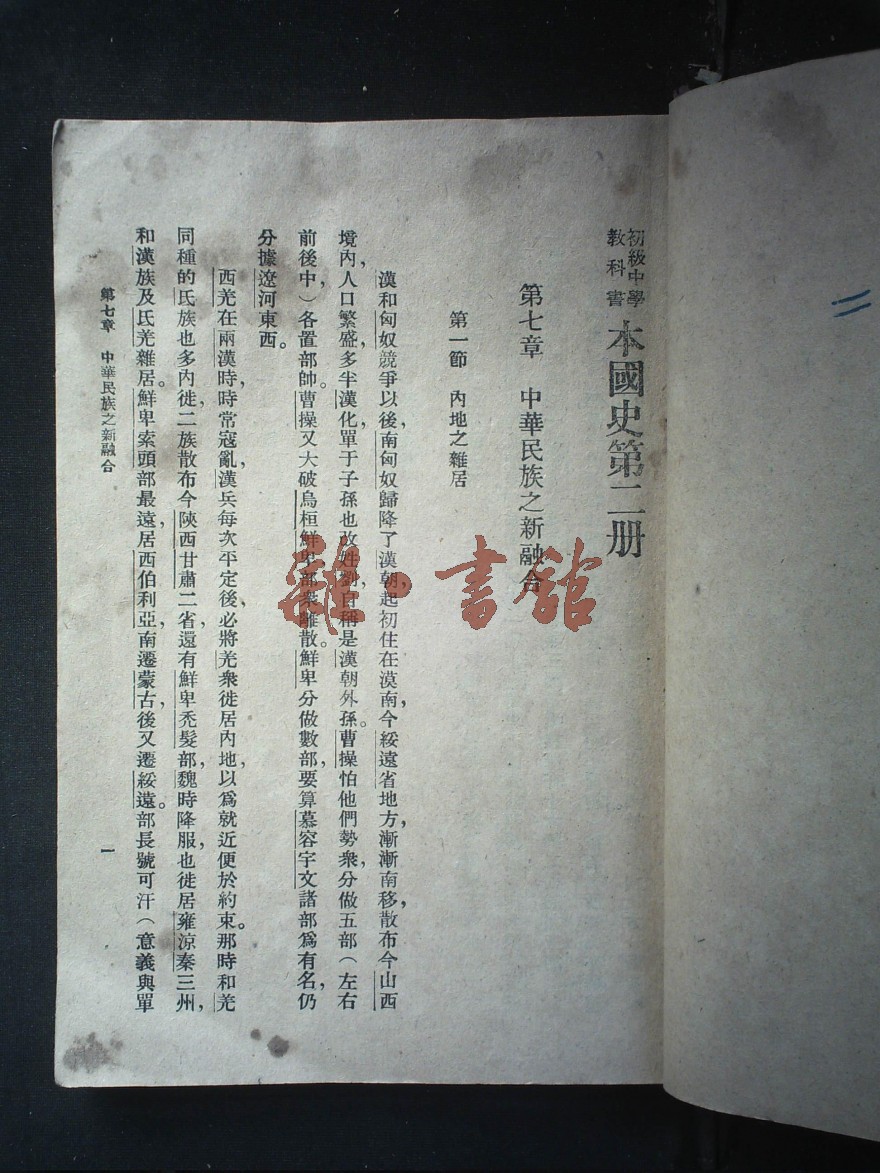 初級中學
教科書
本國史第二册
第七章　中華民族之新融合
第一節　內地之雜居
漢和匈奴競爭以後，南匈奴歸降了漢朝，起初住在漠南，今綏遠省地方，漸漸南移，散布今山西
境內，人口繁盛，多半漢化，單于子孫也改姓劉，自稱是漢朝外孫。曹操怕他們勢衆，分做五部（左右
前後中）各置部帥。曹操又大破烏桓，鮮卑部衆離散。鮮卑分做數部，要算慕容宇文諸部爲有名，仍
分據遼河東西。
西羌在兩漢時，時常寇亂，漢兵每次平定後，必將羌衆徙居內地，以爲就近便於約束。那時和羌
同種的氐族也多內徙，二族散布今陝西甘肅二省，還有鮮卑禿髮部，魏時降服，也徙居雍涼秦三州，
和漢族及氐羌雜居。鮮卑索頭部最遠，居西伯利亞，南遷蒙古，後又遷綏遠。部長號可汗（意義與單
第七章　中華民族之新融合
一
二
雜·書館